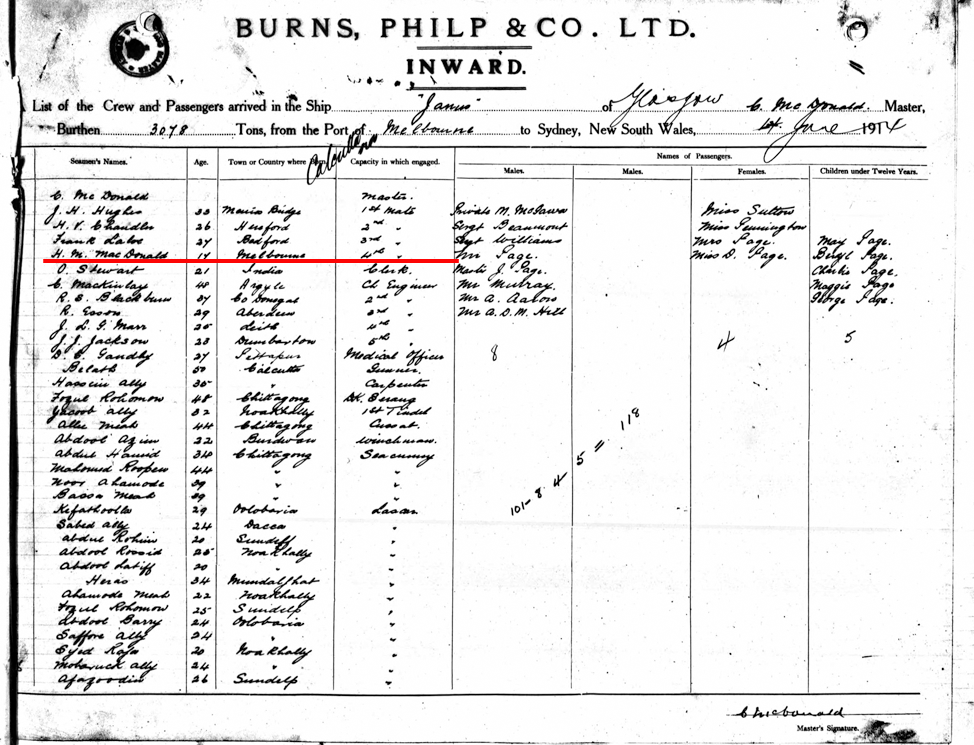 BURNS, PHILP & CO. LTD.
INWARD.
List of the Crew and Passengers arrived in the Ship "Janus" of Glasgow C. McDonald Master,
Burthen 3078 Tons, from the Port of Melbourne to Sydney, New South Wales, 1st June 1914
Calcutta
Seamen's Names. Age. Town or Country where Capacity in which engaged. Names of Passengers.
Males. Males. Females. Children under Twelve Years.
C. McDonald Master.
J. H. Hughes 33 Bridge 1st Mate Private M. Miss Sutton
H. V. Chandler 26 Hereford 2nd " Sergt Beaumont Miss Pennington
Frank 27 Bedford 3rd " Sergt Williams Mrs Page. May Page.
H. M. MacDonald 17 Melbourne 4th " Mr Page. Miss D. Page. Beryl Page.
O. Stewart 21 India Clerk. J. Page. Charlie Page.
C. Mackinlay 48 Argyle Ch Engineer Mr Murray. Maggie Page
R. E. Blackburn 37 Co Donegal 2nd " Mr A. Aarons George Page.
R. Esson 29 Aberdeen 3rd " Mr A. D. M. Hill
J. L. G. Marr 25 Leith 4th "
J. J. Jackson 23 Dumbarton 5th " 4 5
D. E. Gandhy 27 Medical Officer 8
Belath 50 Calcutta Gunner.
Hassein Ally 35 " Carpenter
Fozul Rohomow 48 Chittagong Dk. Serang
Yacoob Ally 32 Noakhally 1st Tindel
Allee Meah 44 Chittagong Cassab.
Abdool Azim 22 Burdwan Winchman.
Abdul Hamid 38 Chittagong Seacunny
Mahomed Roopen 44 " "
Noor Ahamode 39 " "
Bassa Meah 39 " "
Kefathoolla 29 Oolobaria Lascar
Sabed Ally 24 Dacca "
Abdul Rohim 20 Sundeep "
Abdool Rossid 25 Noakhally "
Abdool Latiff 20 " "
Heras 34 Mundalghat "
Ahamode Meah 22 Noakhally "
Fozul Rohomow 25 Sundelp "
Abdool Barry 24 Oolobaria "
Saffore Ally 24 " "
Syed Raja 20 Noakhally "
Mobaruck Ally 24 " "
Afazoodin 26 Sundelp "
101 - 8 4 5 = 118
C McDonald
Master's Signature.